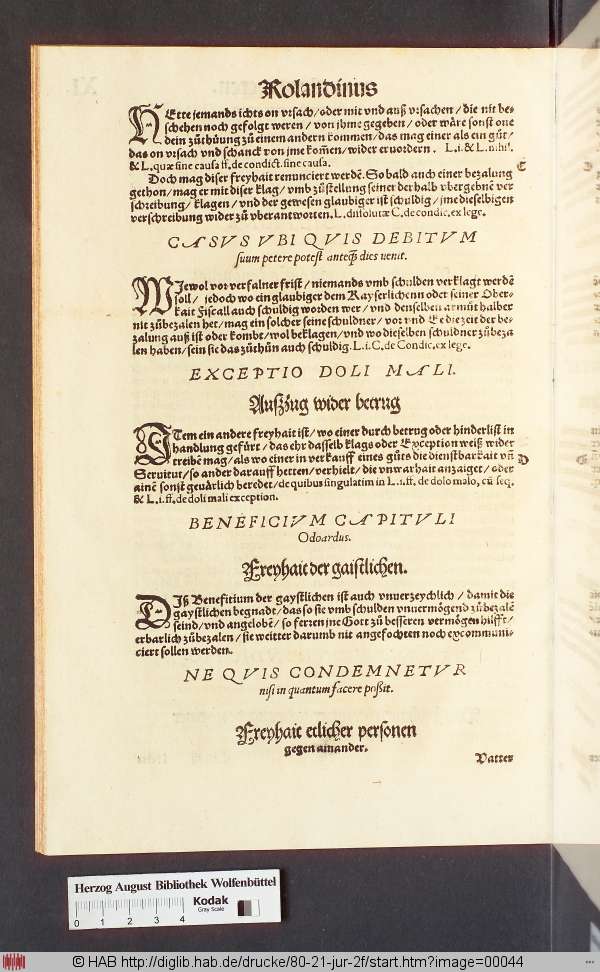 Rolandinus
HEtte jemands ichts on vrsach/oder mit vnd auß vrsachen/die nit be-
schehen noch gefolgt weren/von jhme gegeben/oder wåre sonst one
dein zůthůung zů einem andern kommen/das mag einer als ein gůt/
das on vrsach vnd schanck von jme kom̃en/wider ervordern. L.i. & L.
& L. quæ sine causa ff. de condict. sine causa.
Doch mag diser freyhait renunciert werdẽ. So bald auch einer bezalung
gethon/mag er mit diser klag/vmb zůstellung seiner der halb vbergebnẽ ver
schreibung/klagen/vnd der gewesen glaubiger ist schuldig/jme dieselbigen
verschreibung wider zů vberantworten. L. dissolutæ C. de condic. ex lege.
C
CASVS VBI QVIS DEBITVM
suum petere potest anteq̃ dies uenit.
WJewol vor verfalner frist/niemands vmb schulden verklagt werdẽ
soll/jedoch wo ein glaubiger dem Kayserlichenn oder seiner Ober-
kait Fiscal auch schuldig worden wer/vnd denselben armůt halber
nit zůbezalen het/mag ein solcher seine schuldner/vor vnd Ee die zeit der be-
zalung auß ist oder kombt/wol beklagen/vnd wo dieselben schuldner zůbeza
len haben/sein sie das zůthůn auch schuldig. L.i. C. de Condic. ex lege.
EXCEPTIO DOLI MALI.
Außzug wider betrug
JTem ein andere freyhait ist/wo einer durch betrug oder hinderlist in
handlung gefürt/das ehr dasselb klags oder Exception weiß wider
treibẽ mag/als wo einer in verkauff eines gůts die dienstbarkait vñ
Servitut/so ander darauff hetten/verhielt/die vnwarhait anzaiget/oder
ainẽ sonst gevårlich beredet/de quibus singulatim in L.i. ff. de dolo malo, cũ seq.
& L.i. ff. de doli mali exception.
D
BENEFICIVM CAPITVLI
Odoardus.
Freyhait der gaistlichen.
DJß Benefitium der gaystlichen ist auch vnuerzeychlich/damit die
gaystlichen begnadt/das so sie vmb schulden vnuermögend zůbezalẽ
seind/vnd angelobẽ/so ferzen jne Gott zů besseren vermögen hilfft/
erbarlich zůbezalen/sie weitter darumb nit angefochten noch excommuni-
ciert sollen werden.
NE QVIS CONDEMNETVR
nisi in quantum facere poßit.
Freyhait etlicher personen
gegen ainander.
Vatter
Herzog August Bibliothek Wolfenbüttel
Kodak
Gray Scale
0 1 2 3 4
© HAB http://diglib.hab.de/drucke/80-21-jur-2f/start.htm?image=00044